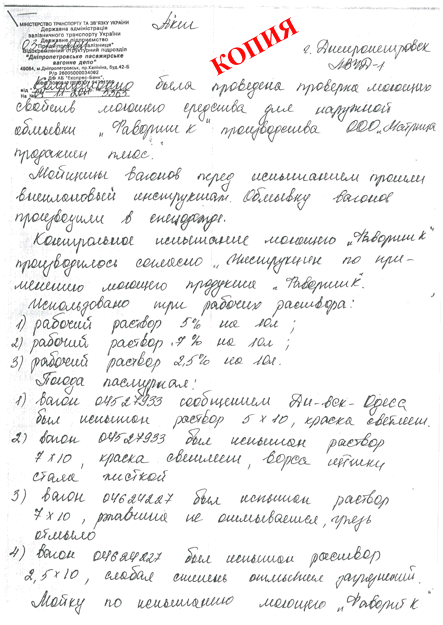 Акт
КОПИЯ
МІНІСТЕРСТВО ТРАНСПОРТУ ТА ЗВ'ЯЗКУ УКРАЇНИ
Державна адміністрація
залізничного транспорту України
Державне підприємство
"Придніпровська залізниця"
Відокремлений структурний підрозділ
"Дніпропетровське пасажирське
вагонне депо"
г. Днепропетровск
ЛВЧД-1
была проведена проверка моющих
свойств моющего средства для наружной
обмывки „Фаворит к" производства ООО „Матрица
продакшн плюс."
Мойщицы вагонов перед испытанием прошли
внеплановый инструктаж. Обмывку вагонов
производили в спецодежде.
Контрольное испытание моющего „Фаворит к"
производилось согласно „Инструкции по при-
менению моющего продукта „Фаворит к".
Использовано три рабочих раствора:
1) рабочий раствор 5% на 10л ;
2) рабочий раствор 7% на 10л ;
3) рабочий раствор 2,5% на 10л.
Погода пасмурная:
1) вагон 04527933 сообщением Дн-вск-Одесса
был испытан раствор 5х10, краска светлеет.
2) вагон 04527933 был испытан раствор
7х10, краска светлеет, ворса щётки
стала чисткой
3) вагон 04624227 был испытан раствор
7х10, ржавчина не отмывается, грязь
отмыло
4) вагон 04624227 был испытан раствор
2,5х10, слабая степень отмывки загрязнений.
Мойку по испытанию моющего „Фаворит к"